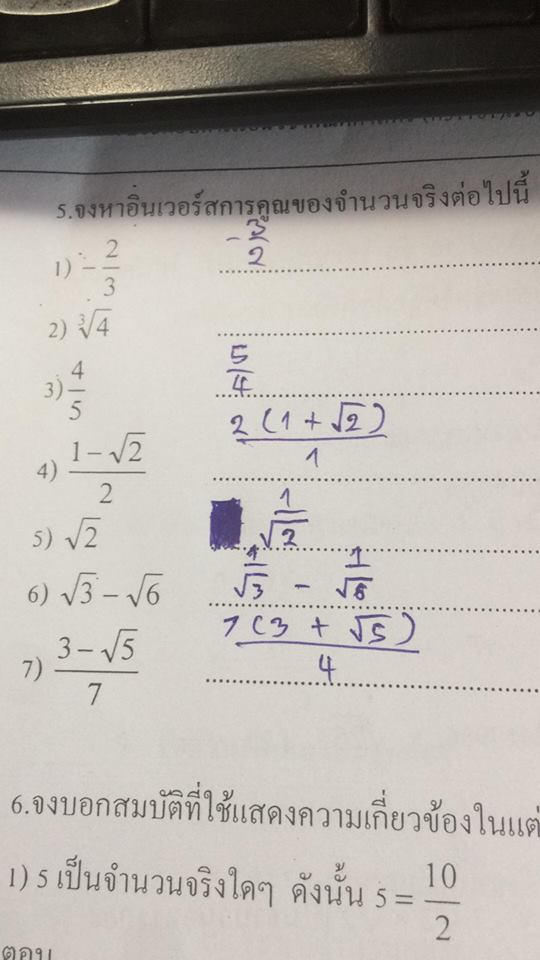 5.จงหาอินเวอร์สการคูณของจำนวนจริงต่อไปนี้
1) -2/3 -3/2
2) ∛4
3) 4/5 5/4
4) (1-√2)/2 2(1+√2)/1
5) √2 1/√2
6) √3-√6 1/√3 - 1/√6
7) (3-√5)/7 7(3+√5)/4
6.จงบอกสมบัติที่ใช้แสดงความเกี่ยวข้องในแต่
1) 5 เป็นจำนวนจริงใดๆ ดังนั้น 5 = 10/2
ตอบ